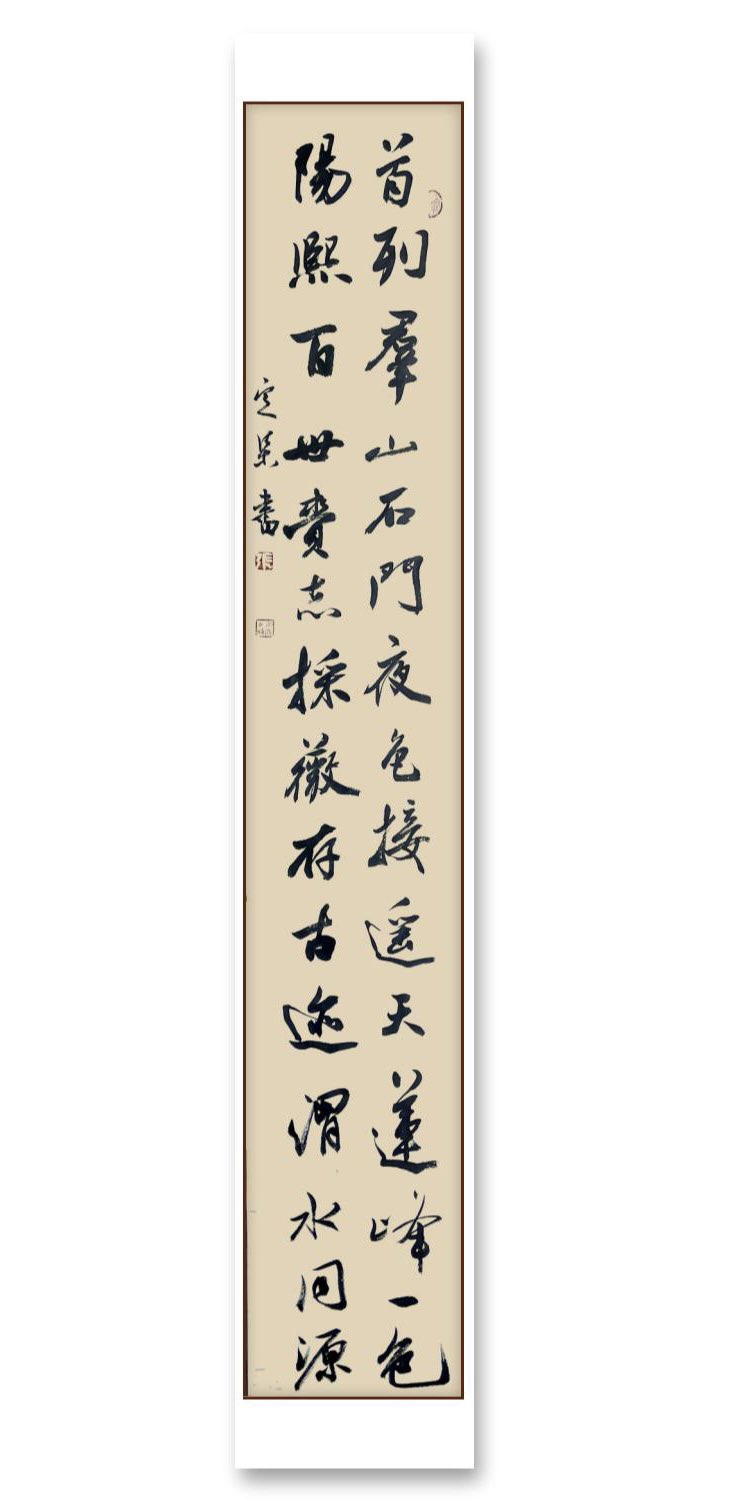 首列羣山石門夜色接遥天蓮峰一色
陽熙百世賫志採薇存古迹渭水同源
定書
張